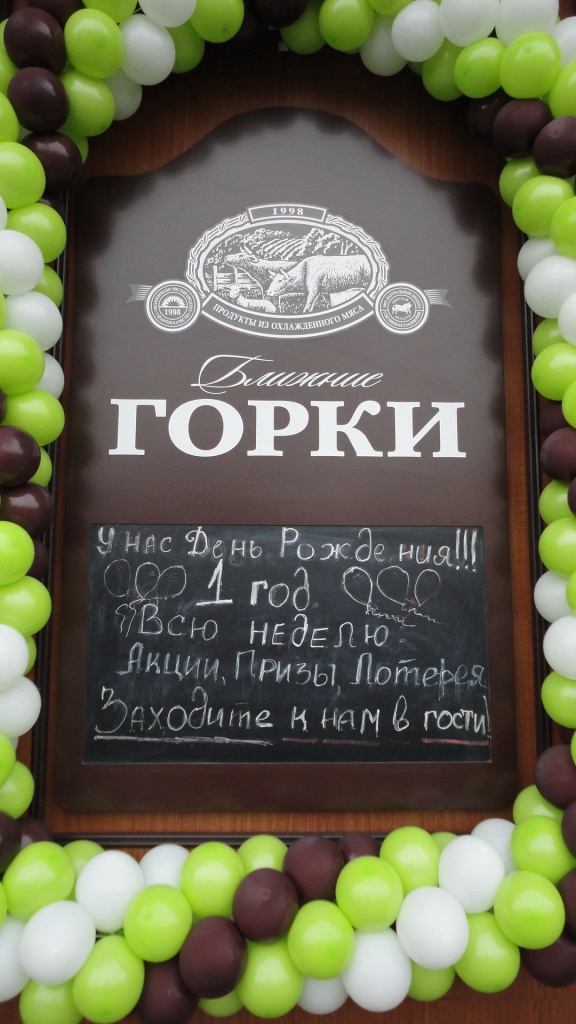 1998
1998
ПРОДУКТЫ ИЗ ОХЛАЖДЕННОГО МЯСА
Ближние
ГОРКИ
У нас День Рождения!!!
1 год
Всю неделю
Акции, Призы, Лотерея
Заходите к нам в гости!